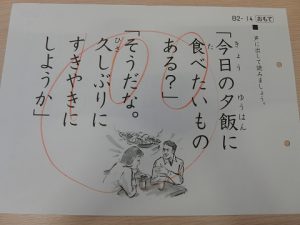 B2-14 おもて
■ 声に出して読みましょう。
「今日の夕飯に
きょう ゆうはん
食べたいもの
た
ある?」
「そうだな。
久しぶりに
ひさ
すきやきに
しようか」